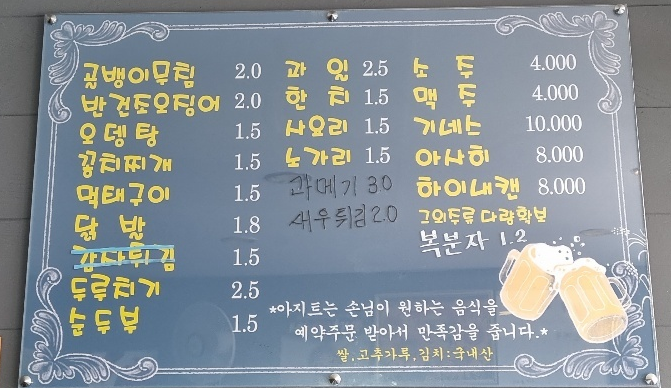 골뱅이무침 2.0
반건조오징어 2.0
오뎅탕 1.5
꽁치찌개 1.5
먹태구이 1.5
닭발 1.8
감사튀김 1.5
두루치기 2.5
순두부 1.5
과일 2.5
한치 1.5
사요리 1.5
노가리 1.5
과메기 30
새우튀김 2.0
소주 4.000
맥주 4.000
기네스 10.000
아사히 8.000
하이네캔 8.000
그외주류 다량확보
복분자 1.2
*아지트는 손님이 원하는 음식을
예약주문 받아서 만족감을 줍니다.*
쌀,고추가루,김치:국내산